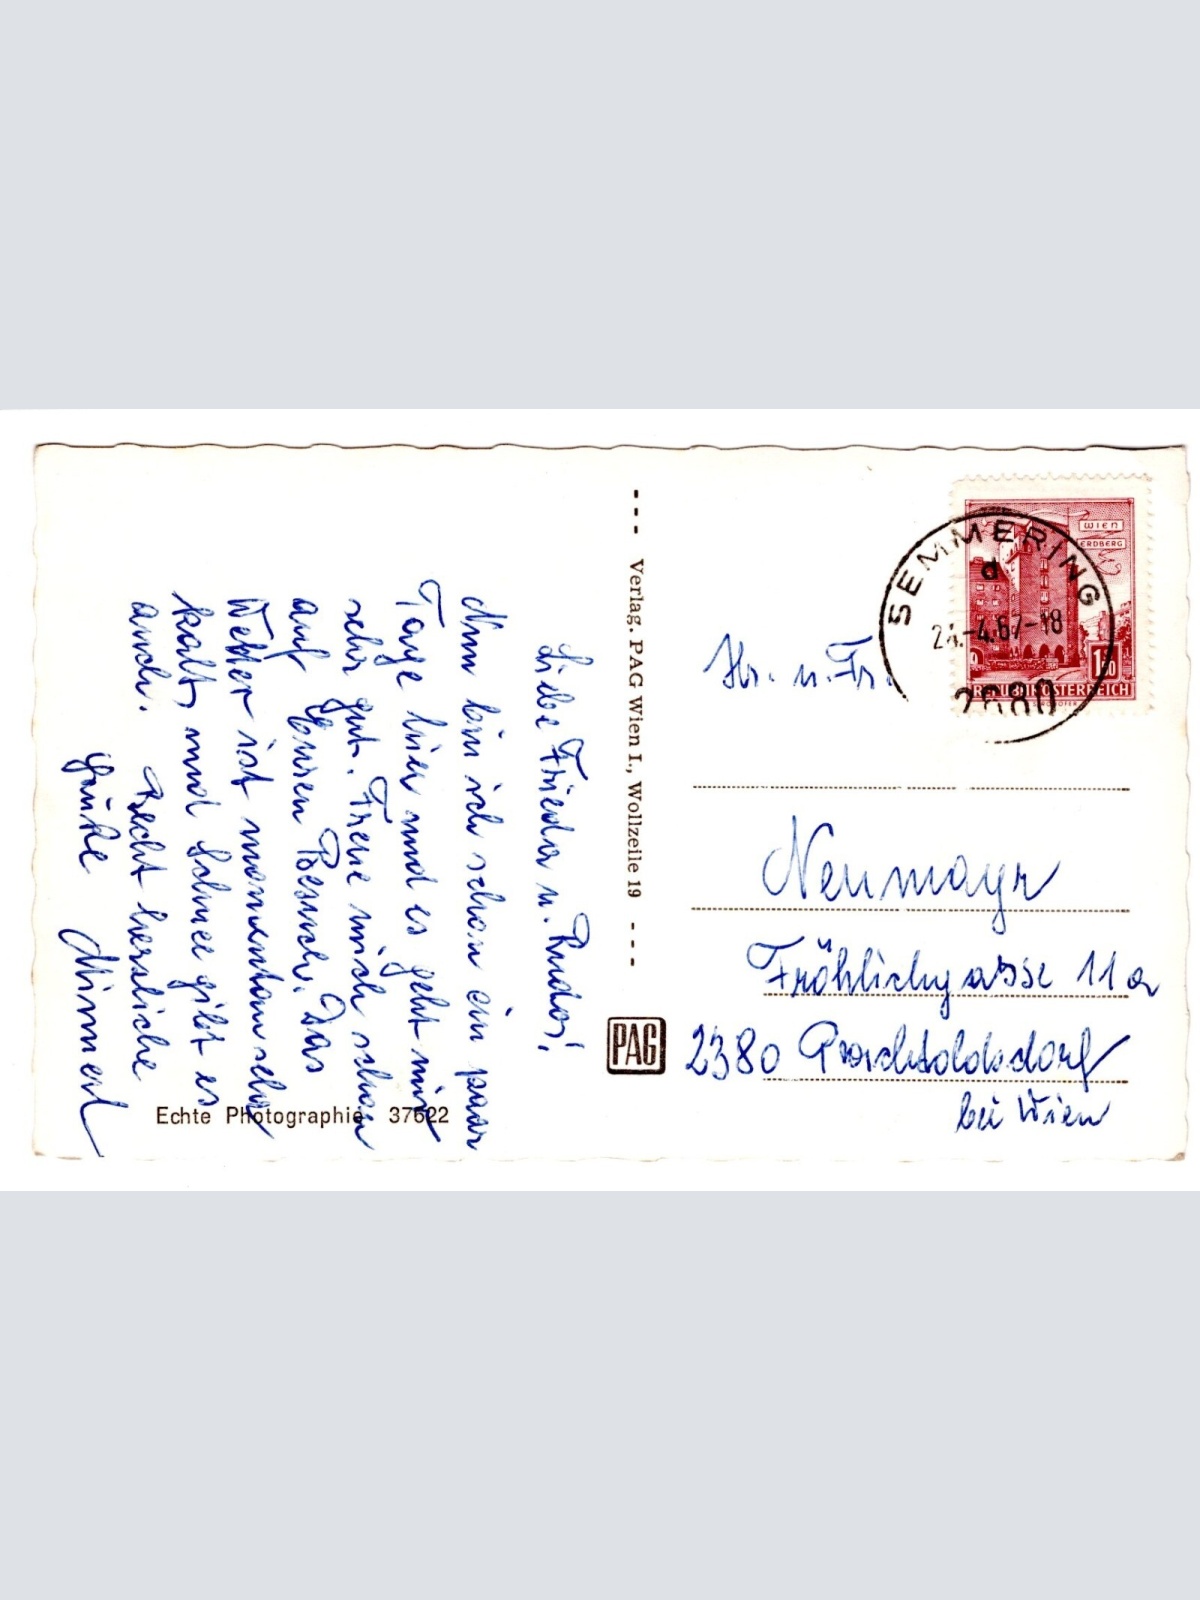 Liebe Frieda u. Rudof,
Nun bin ich schon ein paar
Tage hier und es geht mir
sehr gut. Freue mich schon
auf Euren Besuch. Das
Wetter ist momentan sehr
kalt, und Schnee gibt es
auch. Recht herzliche
Grüße
Minnerl
Echte Photographie 37622
Verlag. PAG Wien I., Wollzeile 19
PAG
SEMMERING
d
-4.67-18
2680
WIEN
ERDBERG
1.50
REPUBLIK ÖSTERREICH
Hr. u. Fr.
Neumayr
Fröhlichgasse 11a
2380 Perchtoldsdorf
bei Wien